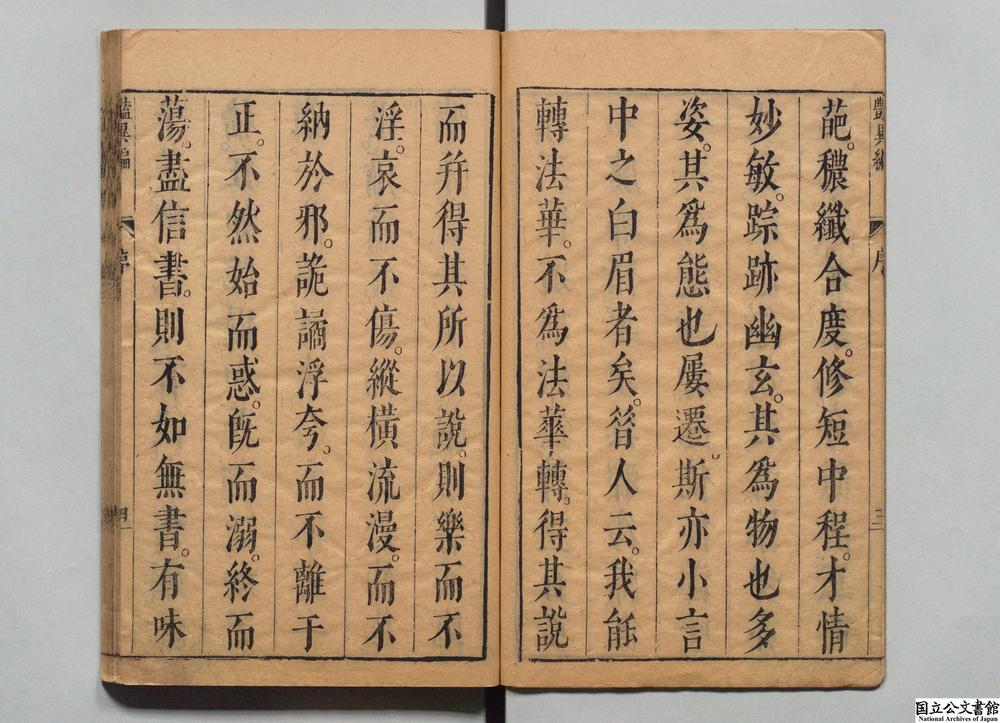 豔異編
序
三
葩。穠纖合度。修短中程。才情
妙敏。踪跡幽玄。其爲物也多
姿。其爲態也屢遷。斯亦小言
中之白眉者矣。昝人云。我能
轉法華。不爲法華轉。得其說
而幷得其所以說。則樂而不
淫。哀而不傷。縱橫流漫。而不
納於邪。詭譎浮夸。而不離于
正。不然始而惑。旣而溺。終而
蕩。盡信書。則不如無書。有味
豔異編
序
四
国立公文書館
National Archives of Japan